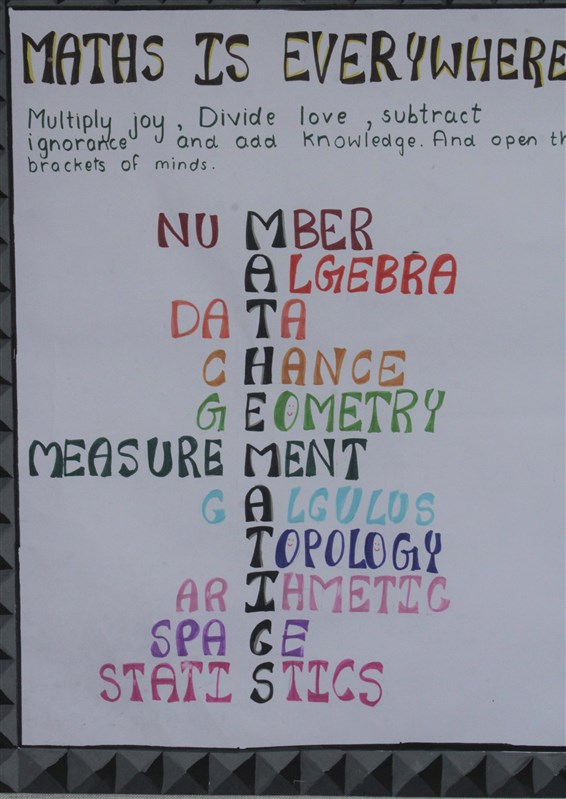 MATHS IS EVERYWHERE
Multiply joy, Divide love, subtract
ignorance and add knowledge. And open th
brackets of minds.
NUMBER
ALGEBRA
DATA
CHANCE
GEOMETRY
MEASUREMENT
CALCULUS
TOPOLOGY
ARIHMETIC
SPACE
STATISTICS